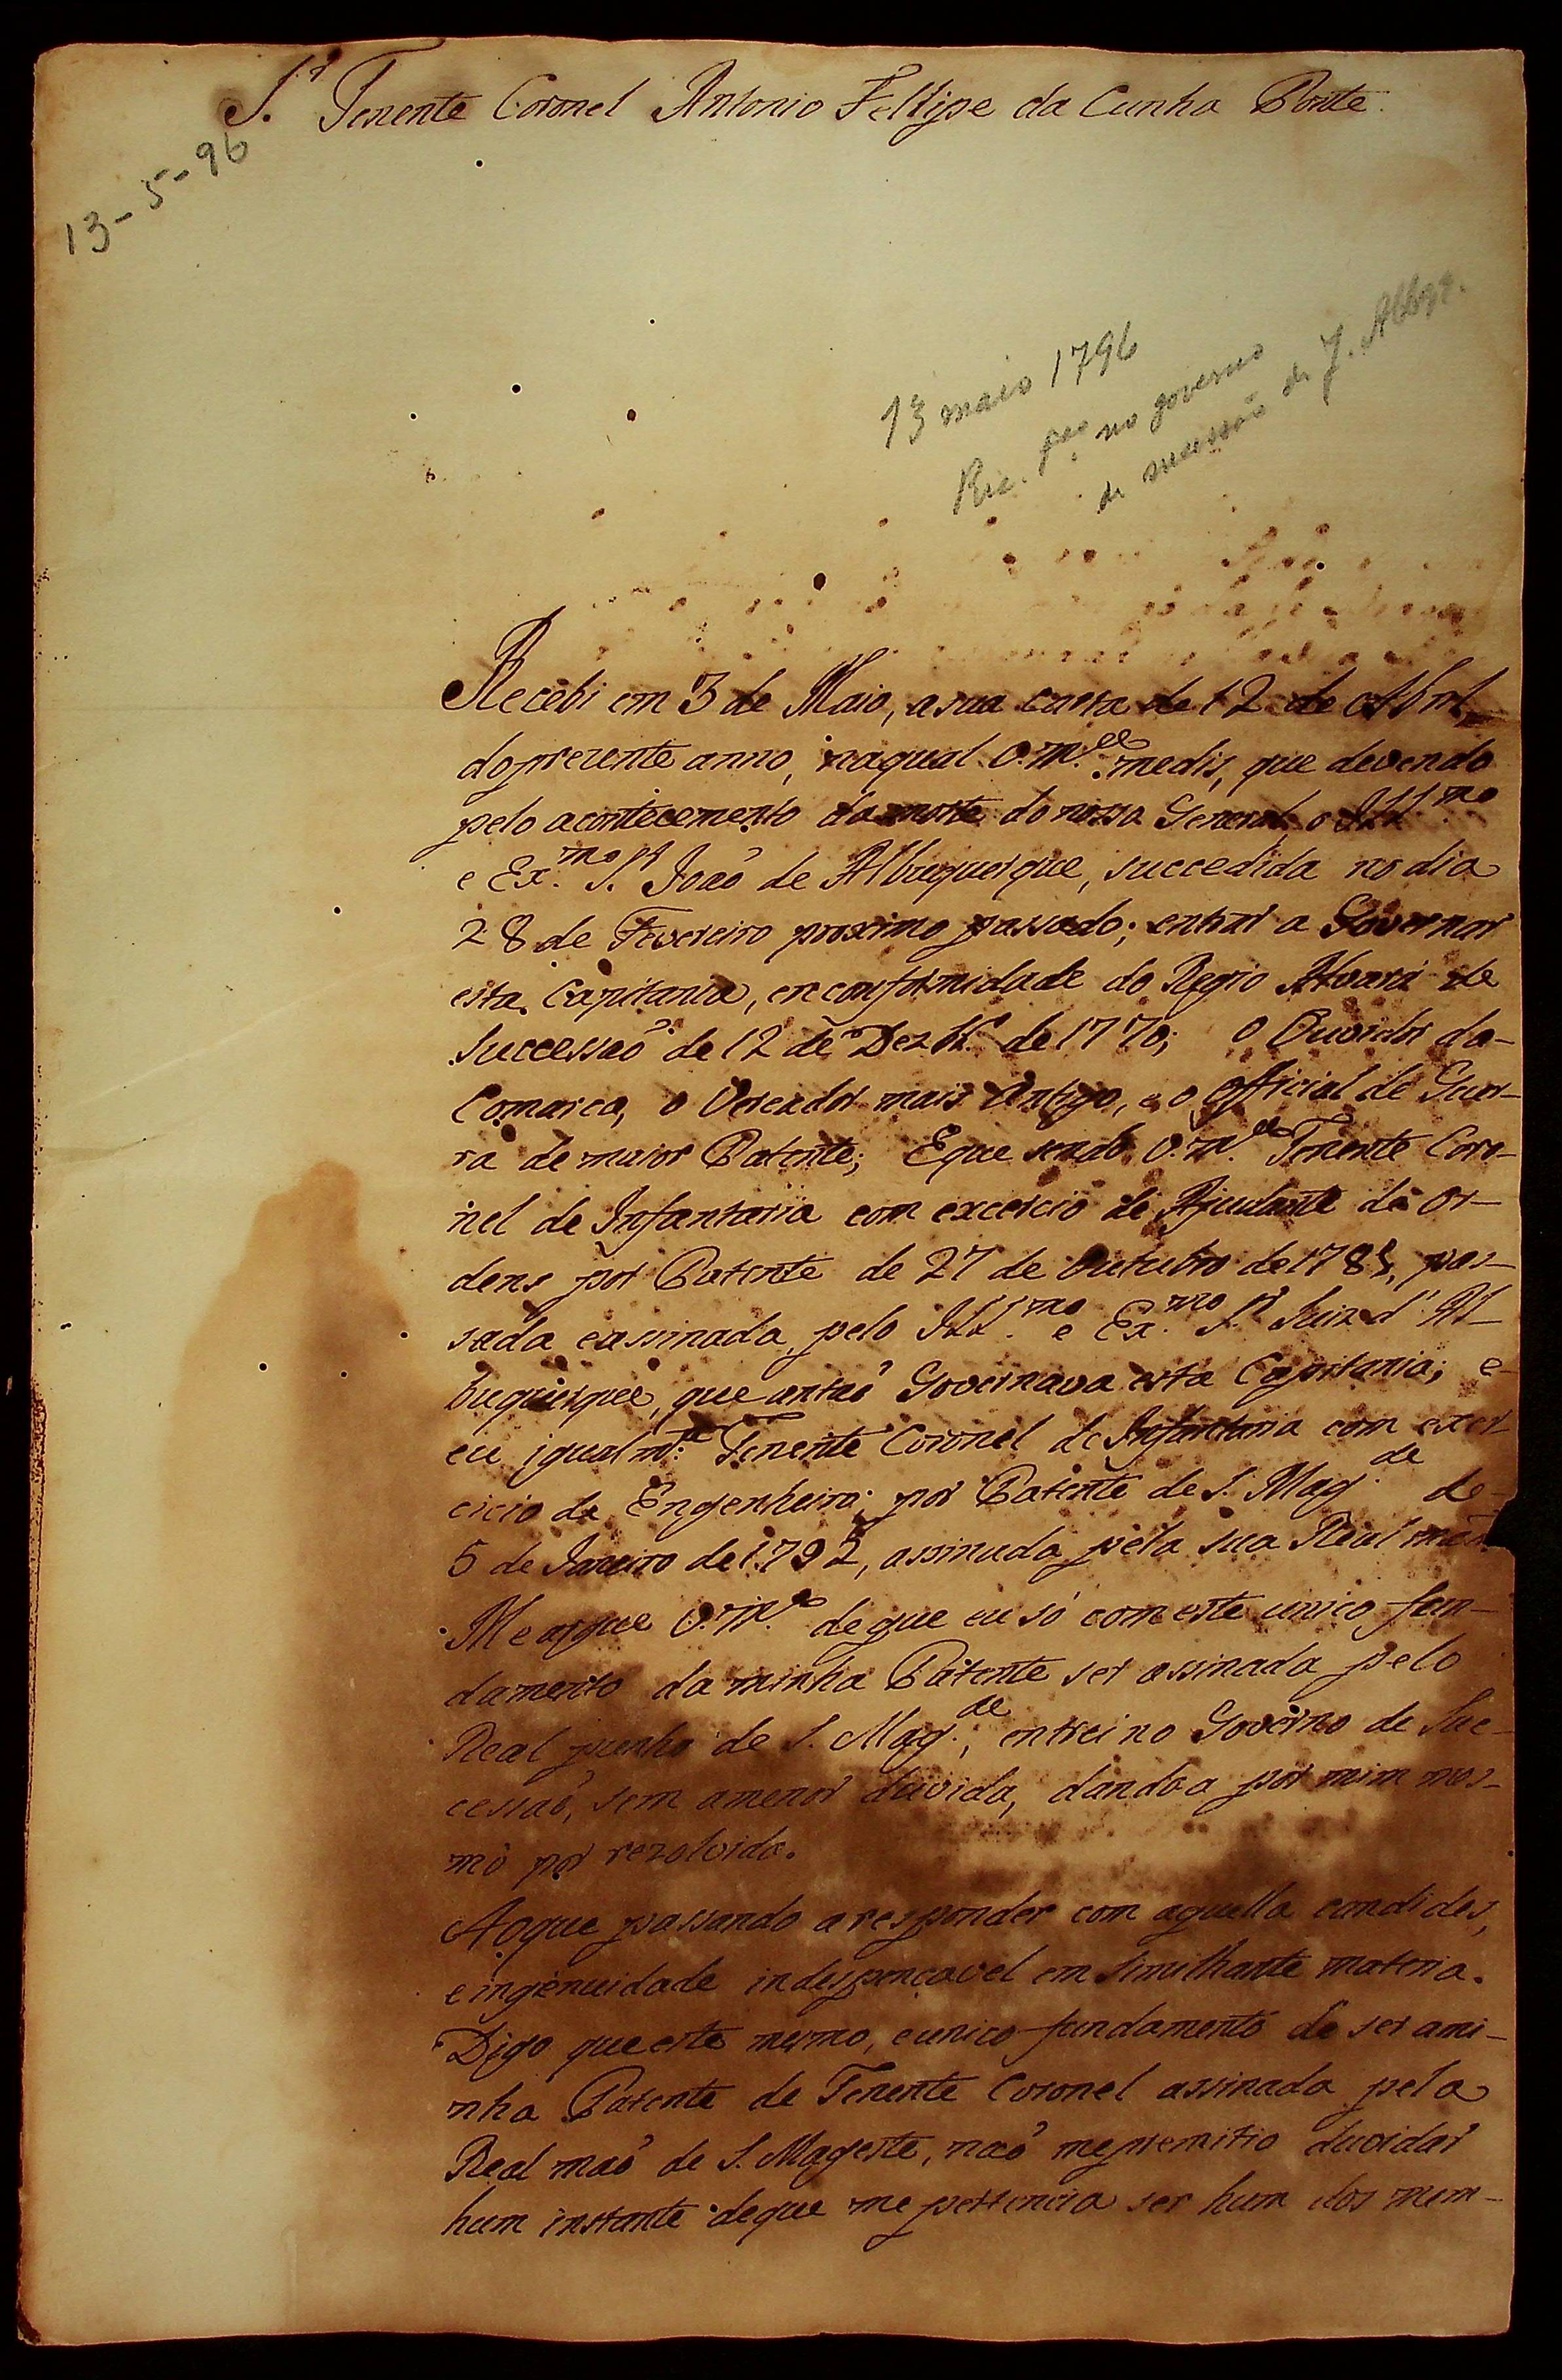 S.r Tenente Coronel Antonio Fellipe da Cunha Ponte.
13-5-96
13 maio 1796
no governo
de sucessão de J. Albqe.
Recebi em 3 de Maio, a sua carta de 12 de Abril
do prezente anno, na qual V.M.ce me dis, que devendo
pelo acontecemento da morte do nosso General o Ill.mo
e Ex.mo S.r Joaõ de Albuquerque, succedida no dia
28 de Fevereiro proximo passado; entrar a Governar
esta Capitania, em conformidade do Regio Alvará de
Successaõ de 12 de Dezbr.o de 1770; O Ouvidor da-
Comarca, o Vereador mais Antigo, e o Official de Guer-
ra de maior Patente; E que sendo V.M.ce Tenente Coro-
nel de Infantaria com exercicio de Ajudante de Or-
dens por Patente de 27 de Outubro de 1788, pas-
sada e assinada, pelo Ill.mo e Ex.mo S.r Luiz d'Al-
buquerque, que antaõ Governava esta Capitania; e-
eu igualm.te Tenente Coronel de Infantaria com exer-
cicio de Engenheiro; por Patente de S. Mag.de de-
5 de Janeiro de 1792, assinada pela sua Real maõ
Me argue V.M.ce de que eu só com este unico fun-
damento da minha Patente ser assinada pelo
Real punho de S. Mag.de, entrei no Governo de Suc-
cessaõ, sem a menor duvida, dando a por mim mes-
mo por rezolvida.
Ao que passando a responder com aquella candides,
e ingenuidade indespençavel em similhante materia.
Digo que este mesmo, e unico fundamento de ser a mi-
nha Patente de Tenente Coronel assinada pela
Real maõ de S. Mageste, naõ me premitio duvidar
hum instante de que me pertencia ser hum dos mem-